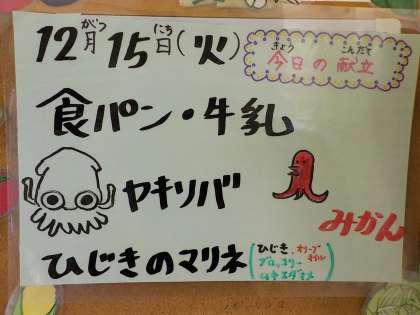 12月15日(火)
がつ にち
きょう こんだて
今日の献立
食パン・牛乳
ヤキソバ
みかん
ひじきのマリネ
ひじき、オリーブ
オイル
ブロッコリー